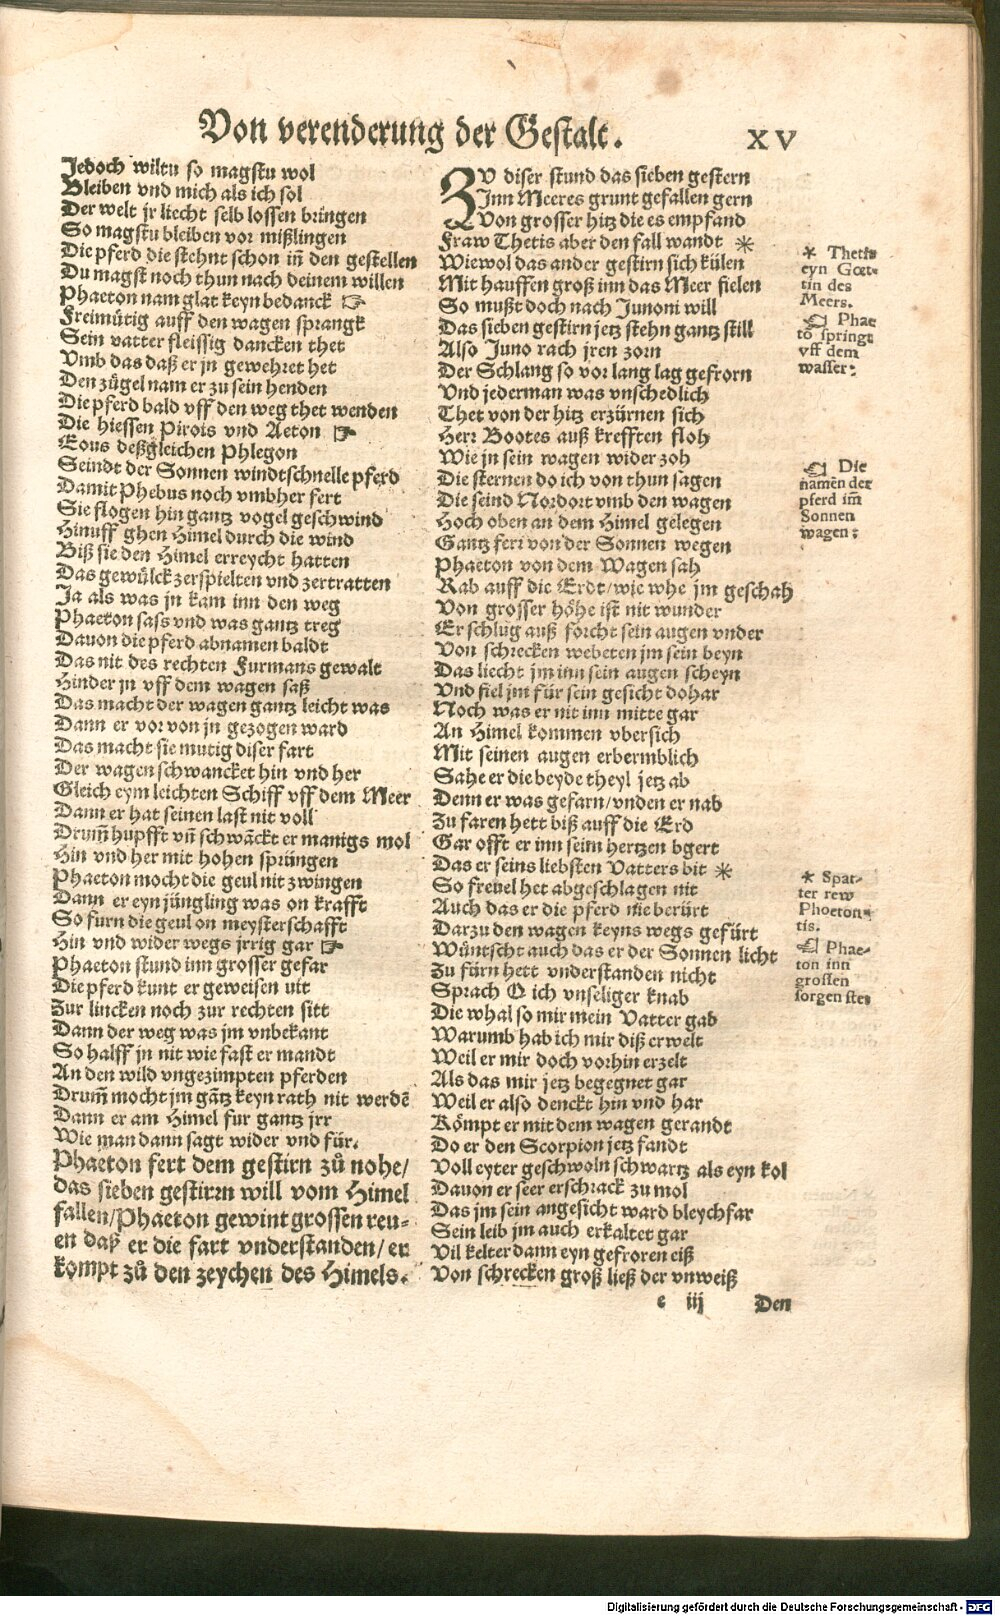 Von verenderung der Gestalt. XV
Jedoch wiltu so magstu wol
Bleiben vnd mich als ich sol
Der welt jr liecht selb lossen bringen
So magstu bleiben vor mißlingen
Die pferd die stehnt schon iñ den gestellen
Du magst noch thun nach deinem willen
Phaeton nam glat keyn bedanck ☞
Freimütig auff den wagen sprangk
Sein vatter fleissig dancken thet
Vmb das daß er jn gewehret het
Den zügel nam er zu sein henden
Die pferd bald vff den weg thet wenden
Die hiessen Pirois vnd Aeton ☞
Eous deßgleichen Phlegon
Seindt der Sonnen windtschnelle pferd
Damit Phebus noch vmbher fert
Sie flogen hin gantz vogel geschwind
Hinuff ghen Himel durch die wind
Biß sie den Himel erreycht hatten
Das gewülck zerspielten vnd zertratten
Ja als was jn kam inn den weg
Phaeton sass vnd was gantz treg
Dauon die pferd abnamen baldt
Das nit des rechten Furmans gewalt
Hinder jn vff dem wagen saß
Das macht der wagen gantz leicht was
Dann er vor von jn gezogen ward
Das macht sie mutig diser fart
Der wagen schwancket hin vnd her
Gleich eym leichten Schiff vff dem Meer
Dann er hat seinen last nit voll
Drum̃ hupfft vñ schwãckt er manigs mol
Hin vnd her mit hohen sprüngen
Phaeton mocht die geul nit zwingen
Dann er eyn jüngling was on krafft
So furn die geul on meysterschafft
Hin vnd wider wegs jrrig gar ☞
Phaeton stund inn grosser gefar
Die pferd kunt er geweisen nit
Zur lincken noch zur rechten sitt
Dann der weg was jm vnbekant
So halff jn nit wie fast er mandt
An den wild vngezimpten pferden
Drum̃ mocht jm gãtz keyn rath nit werdẽ
Dann er am Himel fur gantz jrr
Wie man dann sagt wider vnd für.
Phaeton fert dem gestirn zů nohe/
das sieben gestirrn will vom Himel
fallen/Phaeton gewint grossen reu-
en daß er die fart vnderstanden/er
kompt zů den zeychen des Himels.
ZV diser stund das sieben gestern
Inn Meeres grunt gefallen gern
Von grosser hitz die es empfand
Fraw Thetis aber den fall wandt *
Wiewol das ander gestirn sich külen
Mit hauffen groß inn das Meer fielen
So mußt doch nach Junoni will
Das sieben gestirn jetz stehn gantz still
Also Juno rach jren zorn
Der Schlang so vor lang lag gefrorn
Vnd jederman was vnschedlich
Thet von der hitz erzürnen sich
Herr Bootes auß krefften floh
Wie jn sein wagen wider zoh
Die sternen do ich von thun sagen
Die seind Nordort vmb den wagen
Hoch oben an dem Himel gelegen
Gantz ferr von der Sonnen wegen
Phaeton von dem Wagen sah
Rab auff die Erdt/wie whe jm geschah
Von grosser höhe ist nit wunder
Er schlug auß forcht sein augen vnder
Von schrecken webeten jm sein beyn
Das liecht jm inn sein augen scheyn
Vnd fiel jm für sein gesicht dohar
Noch was er nit inn mitte gar
An Himel kommen vbersich
Mit seinen augen erbermblich
Sahe er die beyde theyl jetz ab
Denn er was gefarn/vnden er nab
Zu faren hett biß auff die Erd
Gar offt er inn seim hertzen bgert
Das er seins liebsten Vatters bit *
So freuel het abgeschlagen nit
Auch das er die pferd nie berürt
Darzu den wagen keyns wegs gefürt
Wüntscht auch das er der Sonnen licht
Zu fürn hett vnderstanden nicht
Sprach O ich vnseliger knab
Die whal so mir mein Vatter gab
Warumb hab ich mir diß erwelt
Weil er mir doch vorhin erzelt
Als das mir jetz begegnet gar
Weil er also denckt hin vnd har
Kömpt er mit dem wagen gerandt
Do er den Scorpion jetz fandt
Voll eyter geschwoln schwartz als eyn kol
Dauon er seer erschrack zu mol
Das jm sein angesicht ward bleychfar
Sein leib jm auch erkaltet gar
Vil kelter dann eyn gefroren eiß
Von schrecken groß ließ der vnweiß
e iij Den
* Thetis
eyn Gœt-
tin des
Meers.
☜ Phae
tõ springt
vff dem
wasser:
☜ Die
namẽn der
pferd im̃
Sonnen
wagen:
* Spat-
ter rew
Phoeton-
tis.
☜ Phae-
ton inn
grossen
sorgen stet
Digitalisierung gefördert durch die Deutsche Forschungsgemeinschaft - DFG